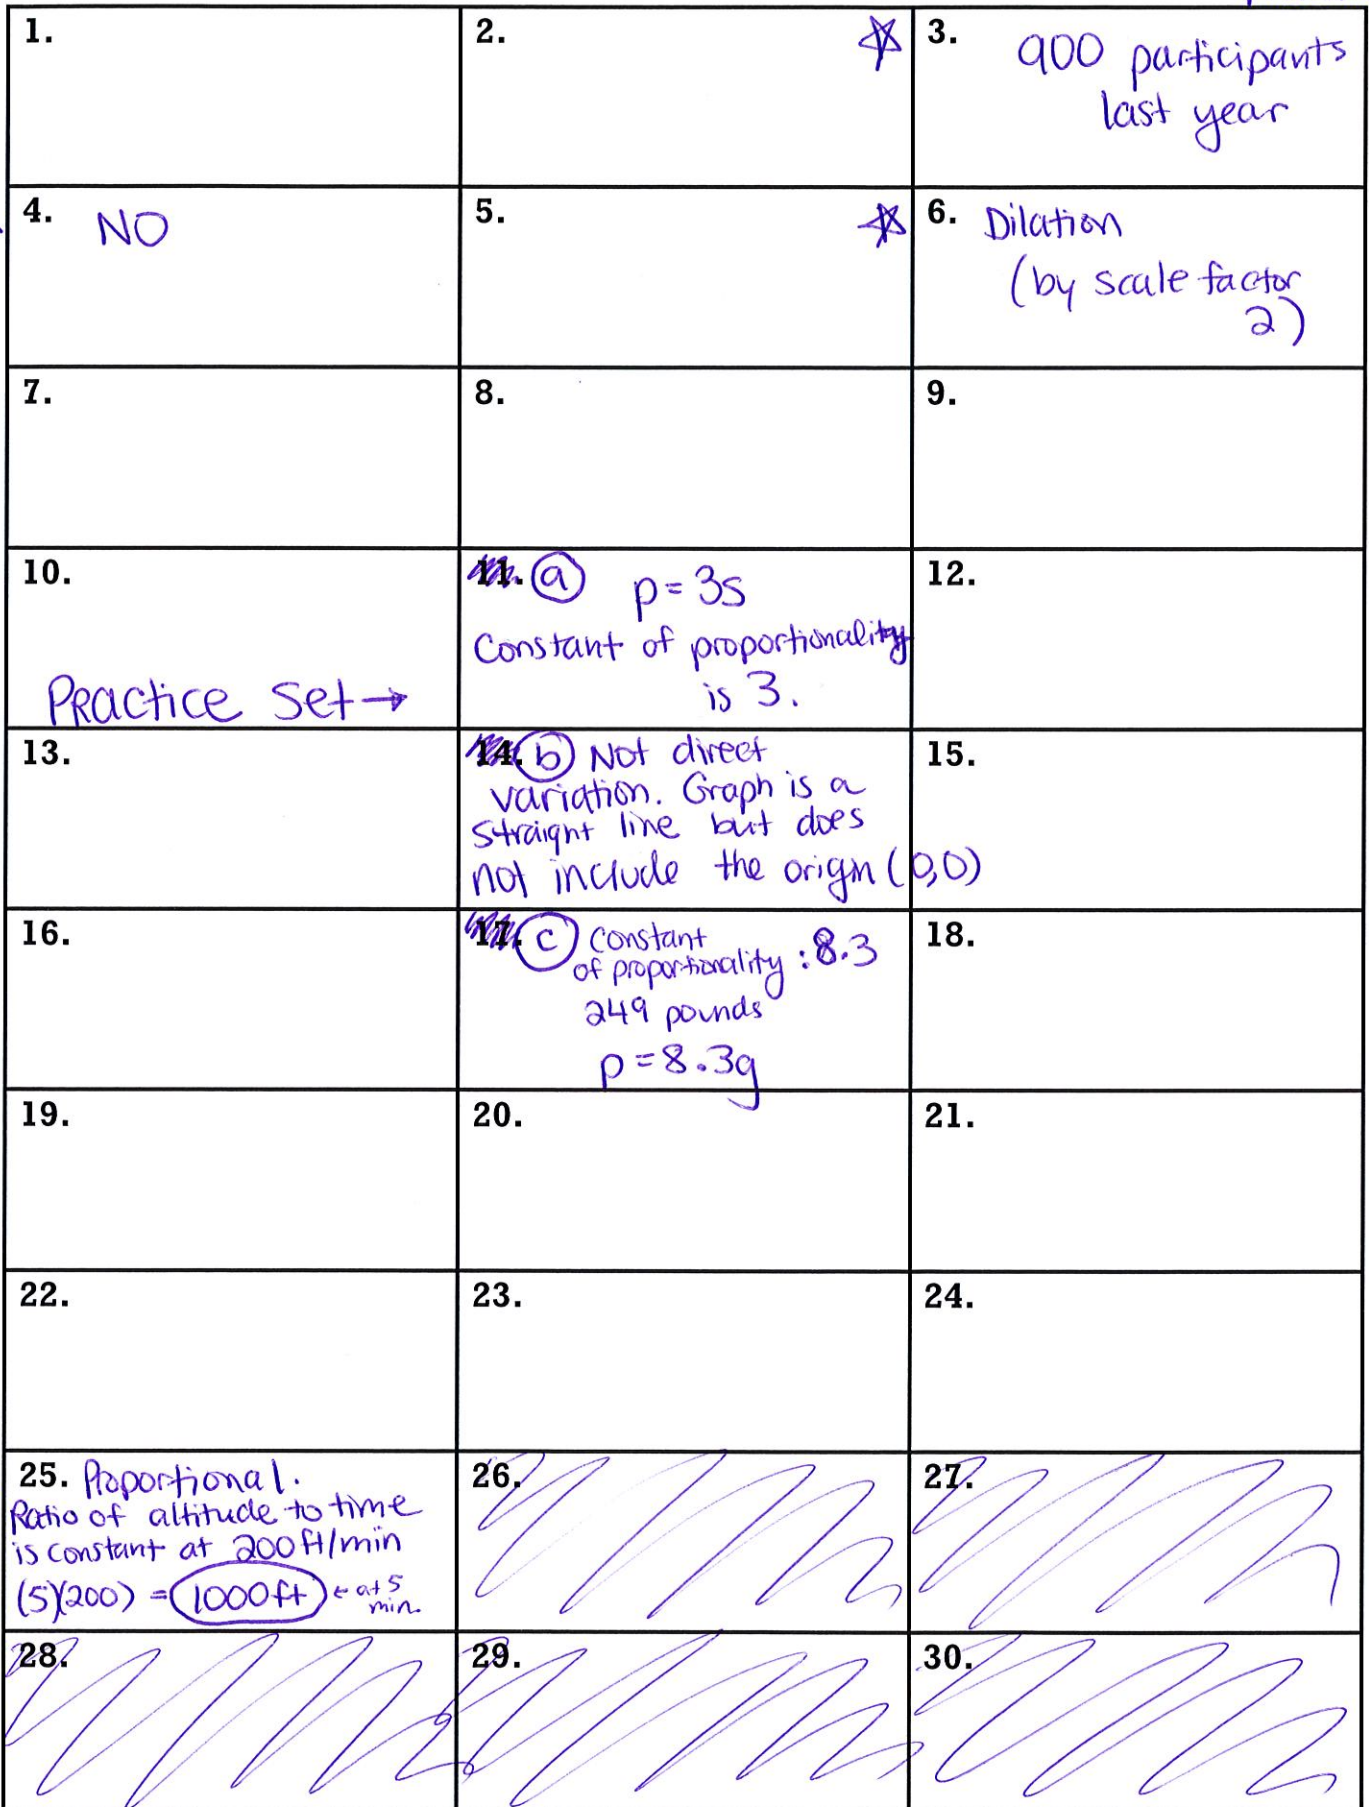 1.
2.
3. 900 participants
last year
4. NO
5.
6. Dilation
(by scale factor
2)
7.
8.
9.
10.
Practice Set →
11. a p = 3s
Constant of proportionality
is 3.
12.
13.
14. b Not direct
variation. Graph is a
straight line but does
not include the origin (0,0)
15.
16.
17. c Constant
of proportionality : 8.3
249 pounds
p = 8.3g
18.
19.
20.
21.
22.
23.
24.
25. Proportional.
Ratio of altitude to time
is constant at 200 ft/min
(5)(200) = 1000 ft ← at 5
min.
26.
27.
28.
29.
30.